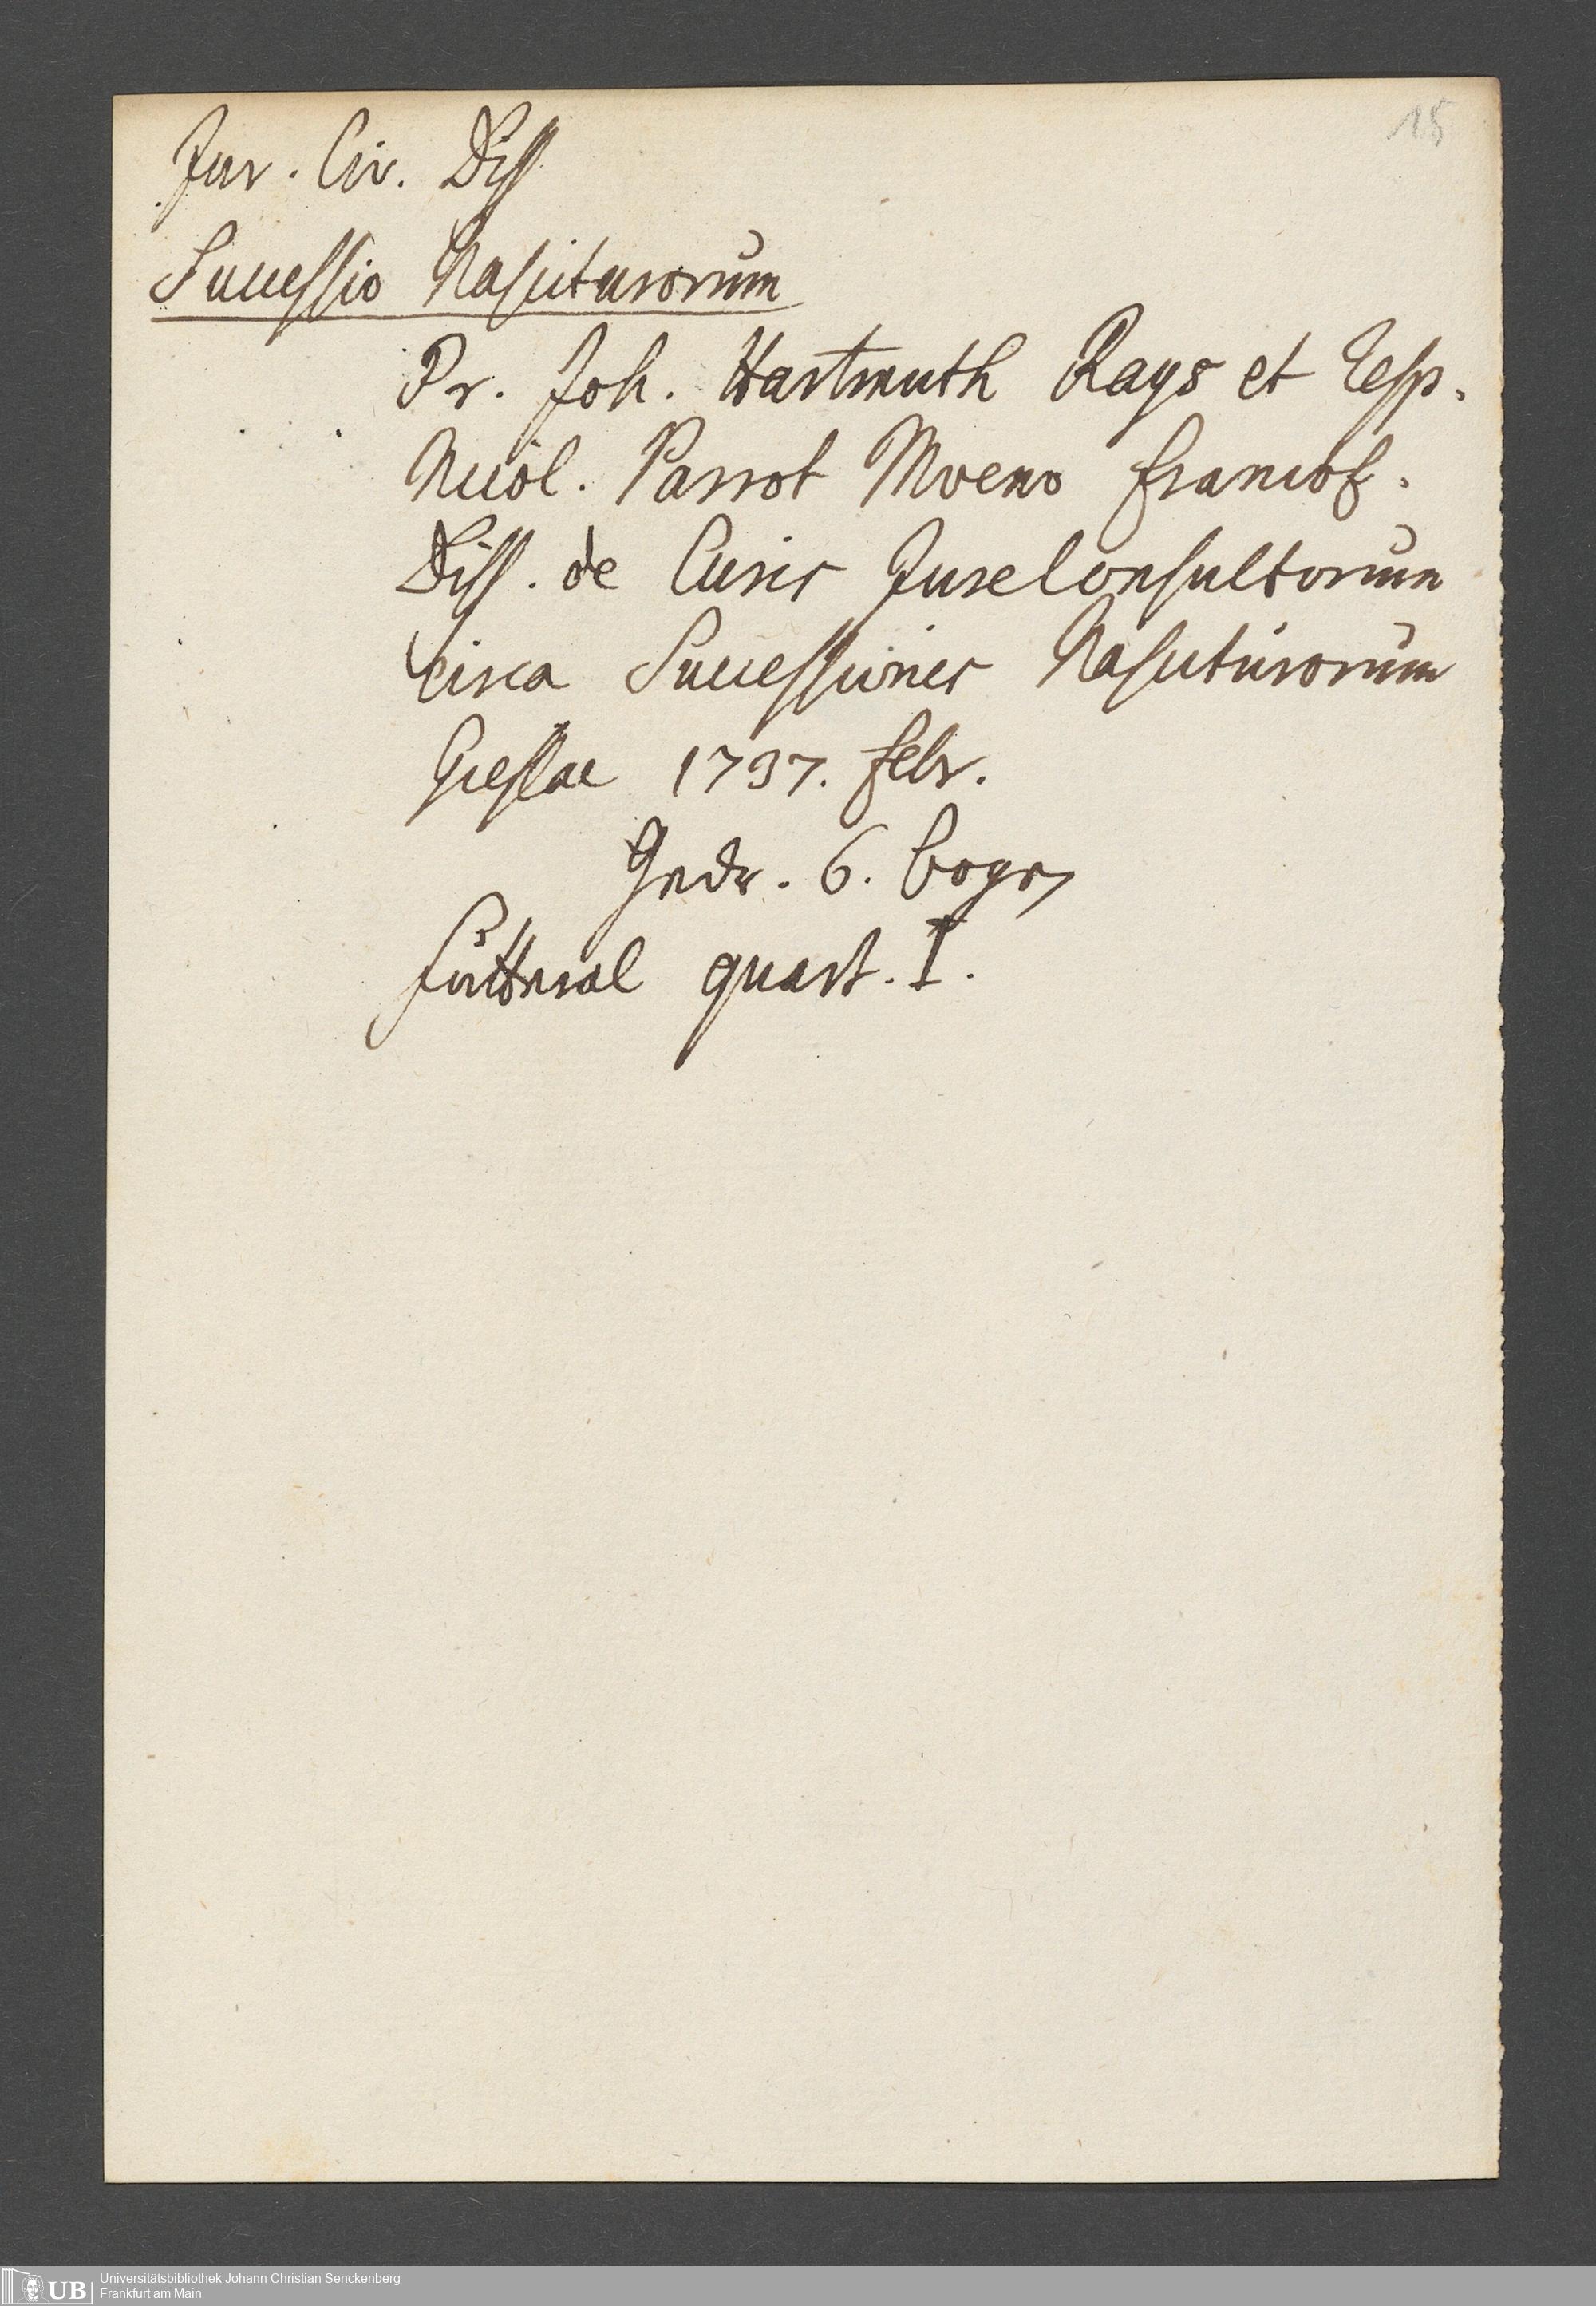 15
Jur. Civ. Diss
Successio Nasciturorum
Pr. Joh. Hartmuth Rays et Resp.
Nicol. Parrot Moeno francof.
Diss. de Curis JureConsultorum
circa Successiones Nasciturorum
Giessae 1737. febr.
Gedr. 6. bogen
futteral quart. I.
UB
Universitätsbibliothek Johann Christian Senckenberg
Frankfurt am Main